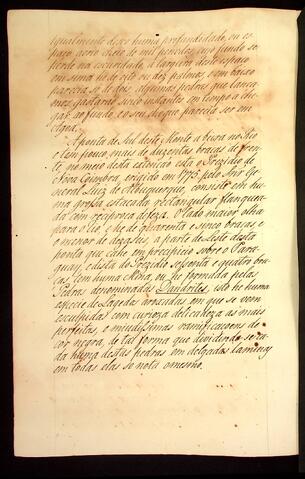 igualmente desse huma profundidade, ou es-
paço aereo cheio de mil penedos, cujo fundo se
perde na escuridade, a largura deste espaço
em sima he de oito ou dez palmos, e em baixo
parecia se de dous, algumas pedras que lança
mos, gastarão sinco instantes em tempo a che-
gar ao fundo, e o seu choque parecia ser em
cima.
A ponta de Sul deste Monte a beira no Rio
e tem pouco mais de duzentas braças de fren-
te, no meio desta extenção está o Prezidio de
Nova Coimbra, erigido em 1775 pelo Snr Ge-
neral Luiz de Albuquerque, consiste em hu-
ma grossa estacada rectangular flanquea-
da com reciproca defeza. O lado maior olha
para o Rio, e he de quarenta e sinco braças e
o menor de dezaseis, a parte de Leste desta
ponta que cahe em precipicio sobre o Para-
guay, e dista do Prezidio sessenta e quatro bra-
ças, tem huma Mina, ou he formada pelas
Pedras denominadas Dandrites, isto he huma
especie de Lagedos arroxadas em que se vem
esculpidas com curioza delicadeza as mais
perfeitas e miudissimas ramificaçoens de
cor negra, de tal forma que dividindo se ca-
da huma destas pedras em delgadas Laminas
em todas elas se nota o mesmo.